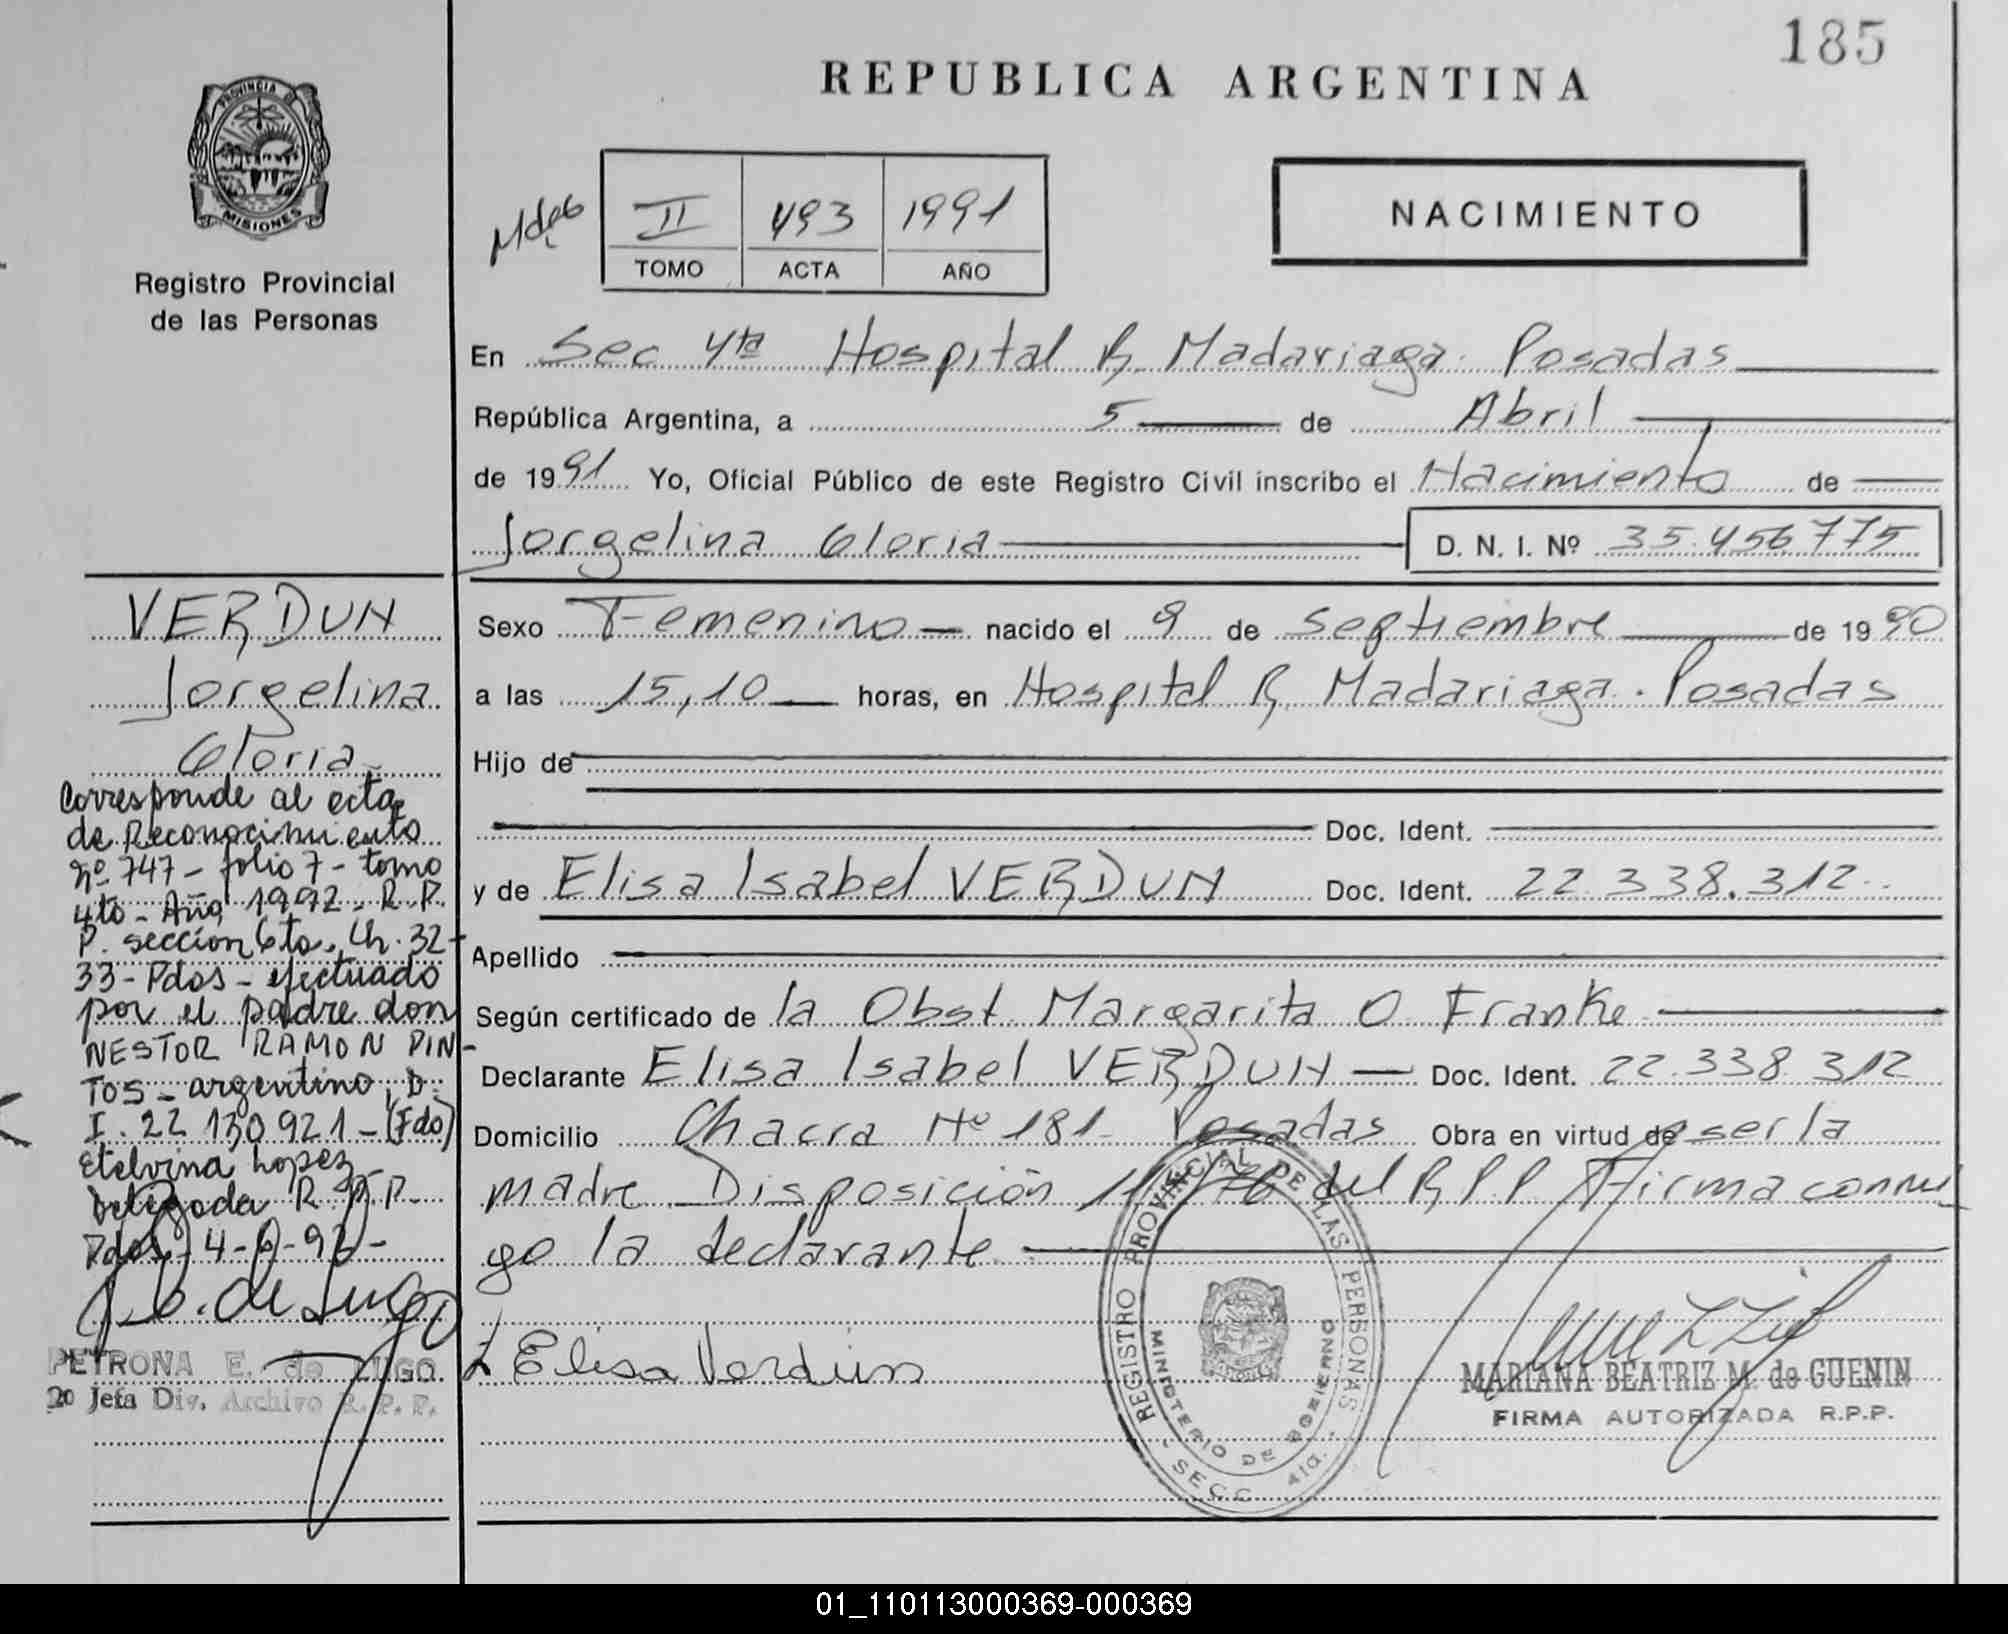 185
REPUBLICA ARGENTINA
PROVINCIA DE
MISIONES
Registro Provincial
de las Personas
II 493 1991
TOMO ACTA AÑO
NACIMIENTO
En Sec 4ta Hospital R. Madariaga. Posadas
República Argentina, a 5 de Abril
de 1991 Yo, Oficial Público de este Registro Civil inscribo el Nacimiento de
Jorgelina Gloria D. N. I. Nº 35.456.775
Sexo Femenino nacido el 9 de septiembre de 1990
a las 15,10 horas, en Hospital R. Madariaga. Posadas
Hijo de
Doc. Ident.
y de Elisa Isabel VERDUN Doc. Ident. 22.338.312
Apellido
Según certificado de la Obst. Margarita O. Franke
Declarante Elisa Isabel VERDUN Doc. Ident. 22.338.312
Domicilio Chacra Nº 181 - Posadas Obra en virtud de ser la
madre. Disposición del R.P.P. Firma conmi
go la declarante
Elisa Verdun
REGISTRO PROVINCIAL DE LAS PERSONAS
MINISTERIO DE GOBIERNO
- SECC 4ta. -
MARIANA BEATRIZ M. de GUENIN
FIRMA AUTORIZADA R.P.P.
VERDUN
Jorgelina
Gloria
Corresponde al acta
de Reconocimiento
Nº 747 - folio 7 - tomo
4to - Año 1992 - R. P.
P. sección 6ta. Ch. 32-
33 - Pdas - efectuado
por el padre don
NESTOR RAMON PIN-
TOS - argentino, D.
I. 22 130 921 - (Fdo)
Etelvina Lopez
Delegada R. P. P.
Pdas
PETRONA E. de LUGO
2o Jefa Div. Archivo R. P. P.
01_110113000369-000369